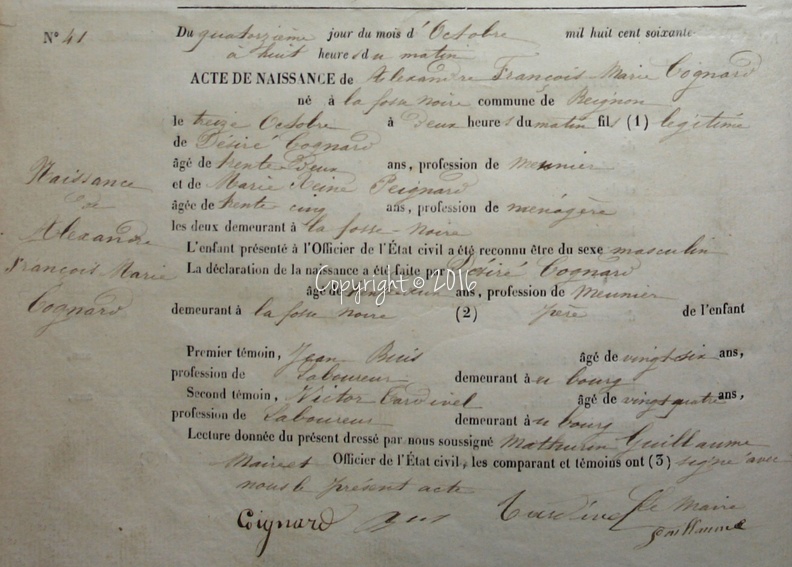 N° 41
Du quatorzième jour du mois d'Octobre mil huit cent soixante-
à huit heures du matin
ACTE DE NAISSANCE de Alexandre François Marie Cognard
né à la fosse noire commune de Beignon
le treize Octobre à Deux heures du matin fils (1) légitime
de Désiré Cognard
âgé de trente Deux ans, profession de meunier
et de Marie Reine Peignard
âgée de trente-cinq ans, profession de ménagère
les deux demeurant à la fosse-noire
L'enfant présenté à l'Officier de l'État civil a été reconnu être du sexe masculin
La déclaration de la naissance a été faite par Désiré Cognard
âgé de trente-deux ans, profession de Meunier
demeurant à la fosse noire (2) père de l'enfant
Premier témoin, Jean âgé de vingt-six ans,
profession de Laboureur demeurant à u bourg
Second témoin, Victor Tardivel âgé de vingt-quatre ans,
profession de Laboureur demeurant à u bourg
Lecture donnée du présent dressé par nous soussigné Mathurin Guillaume
Maire et Officier de l'État civil, les comparant et témoins ont (3) signé avec
nous le présent acte
Coignard Tardivel Le Maire
Guillaume
Naissance
de
Alexandre
François Marie
Cognard
Copyright © 2016